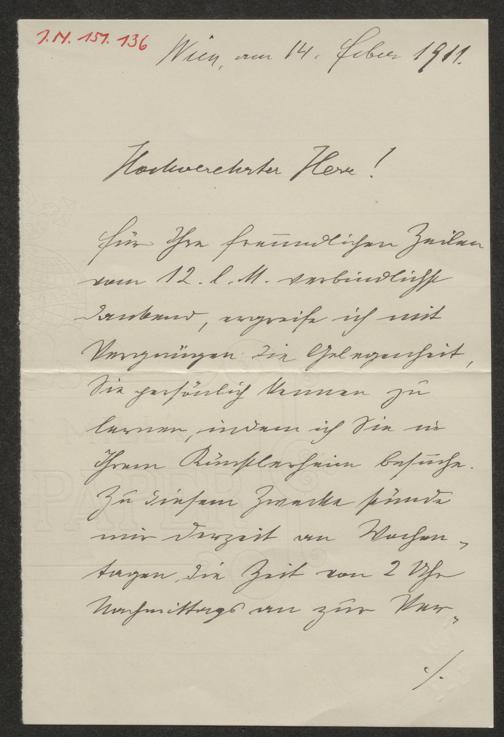 J.N. 151.136
Wien, am 14. Feber 1911.
Hochverehrter Herr!
Für Ihre freundlichen Zeilen
vom 12. l. M. verbindlichst
dankend, ergreife ich mit
Vergnügen die Gelegenheit,
Sie persönlich kennen zu
lernen, indem ich Sie in
Ihrem Künstlerheim besuche.
Zu diesem Zwecke stünde
mir derzeit an Wochen-
tagen die Zeit von 2 Uhr
Nachmittags an zur Ver-
./.
PAPER